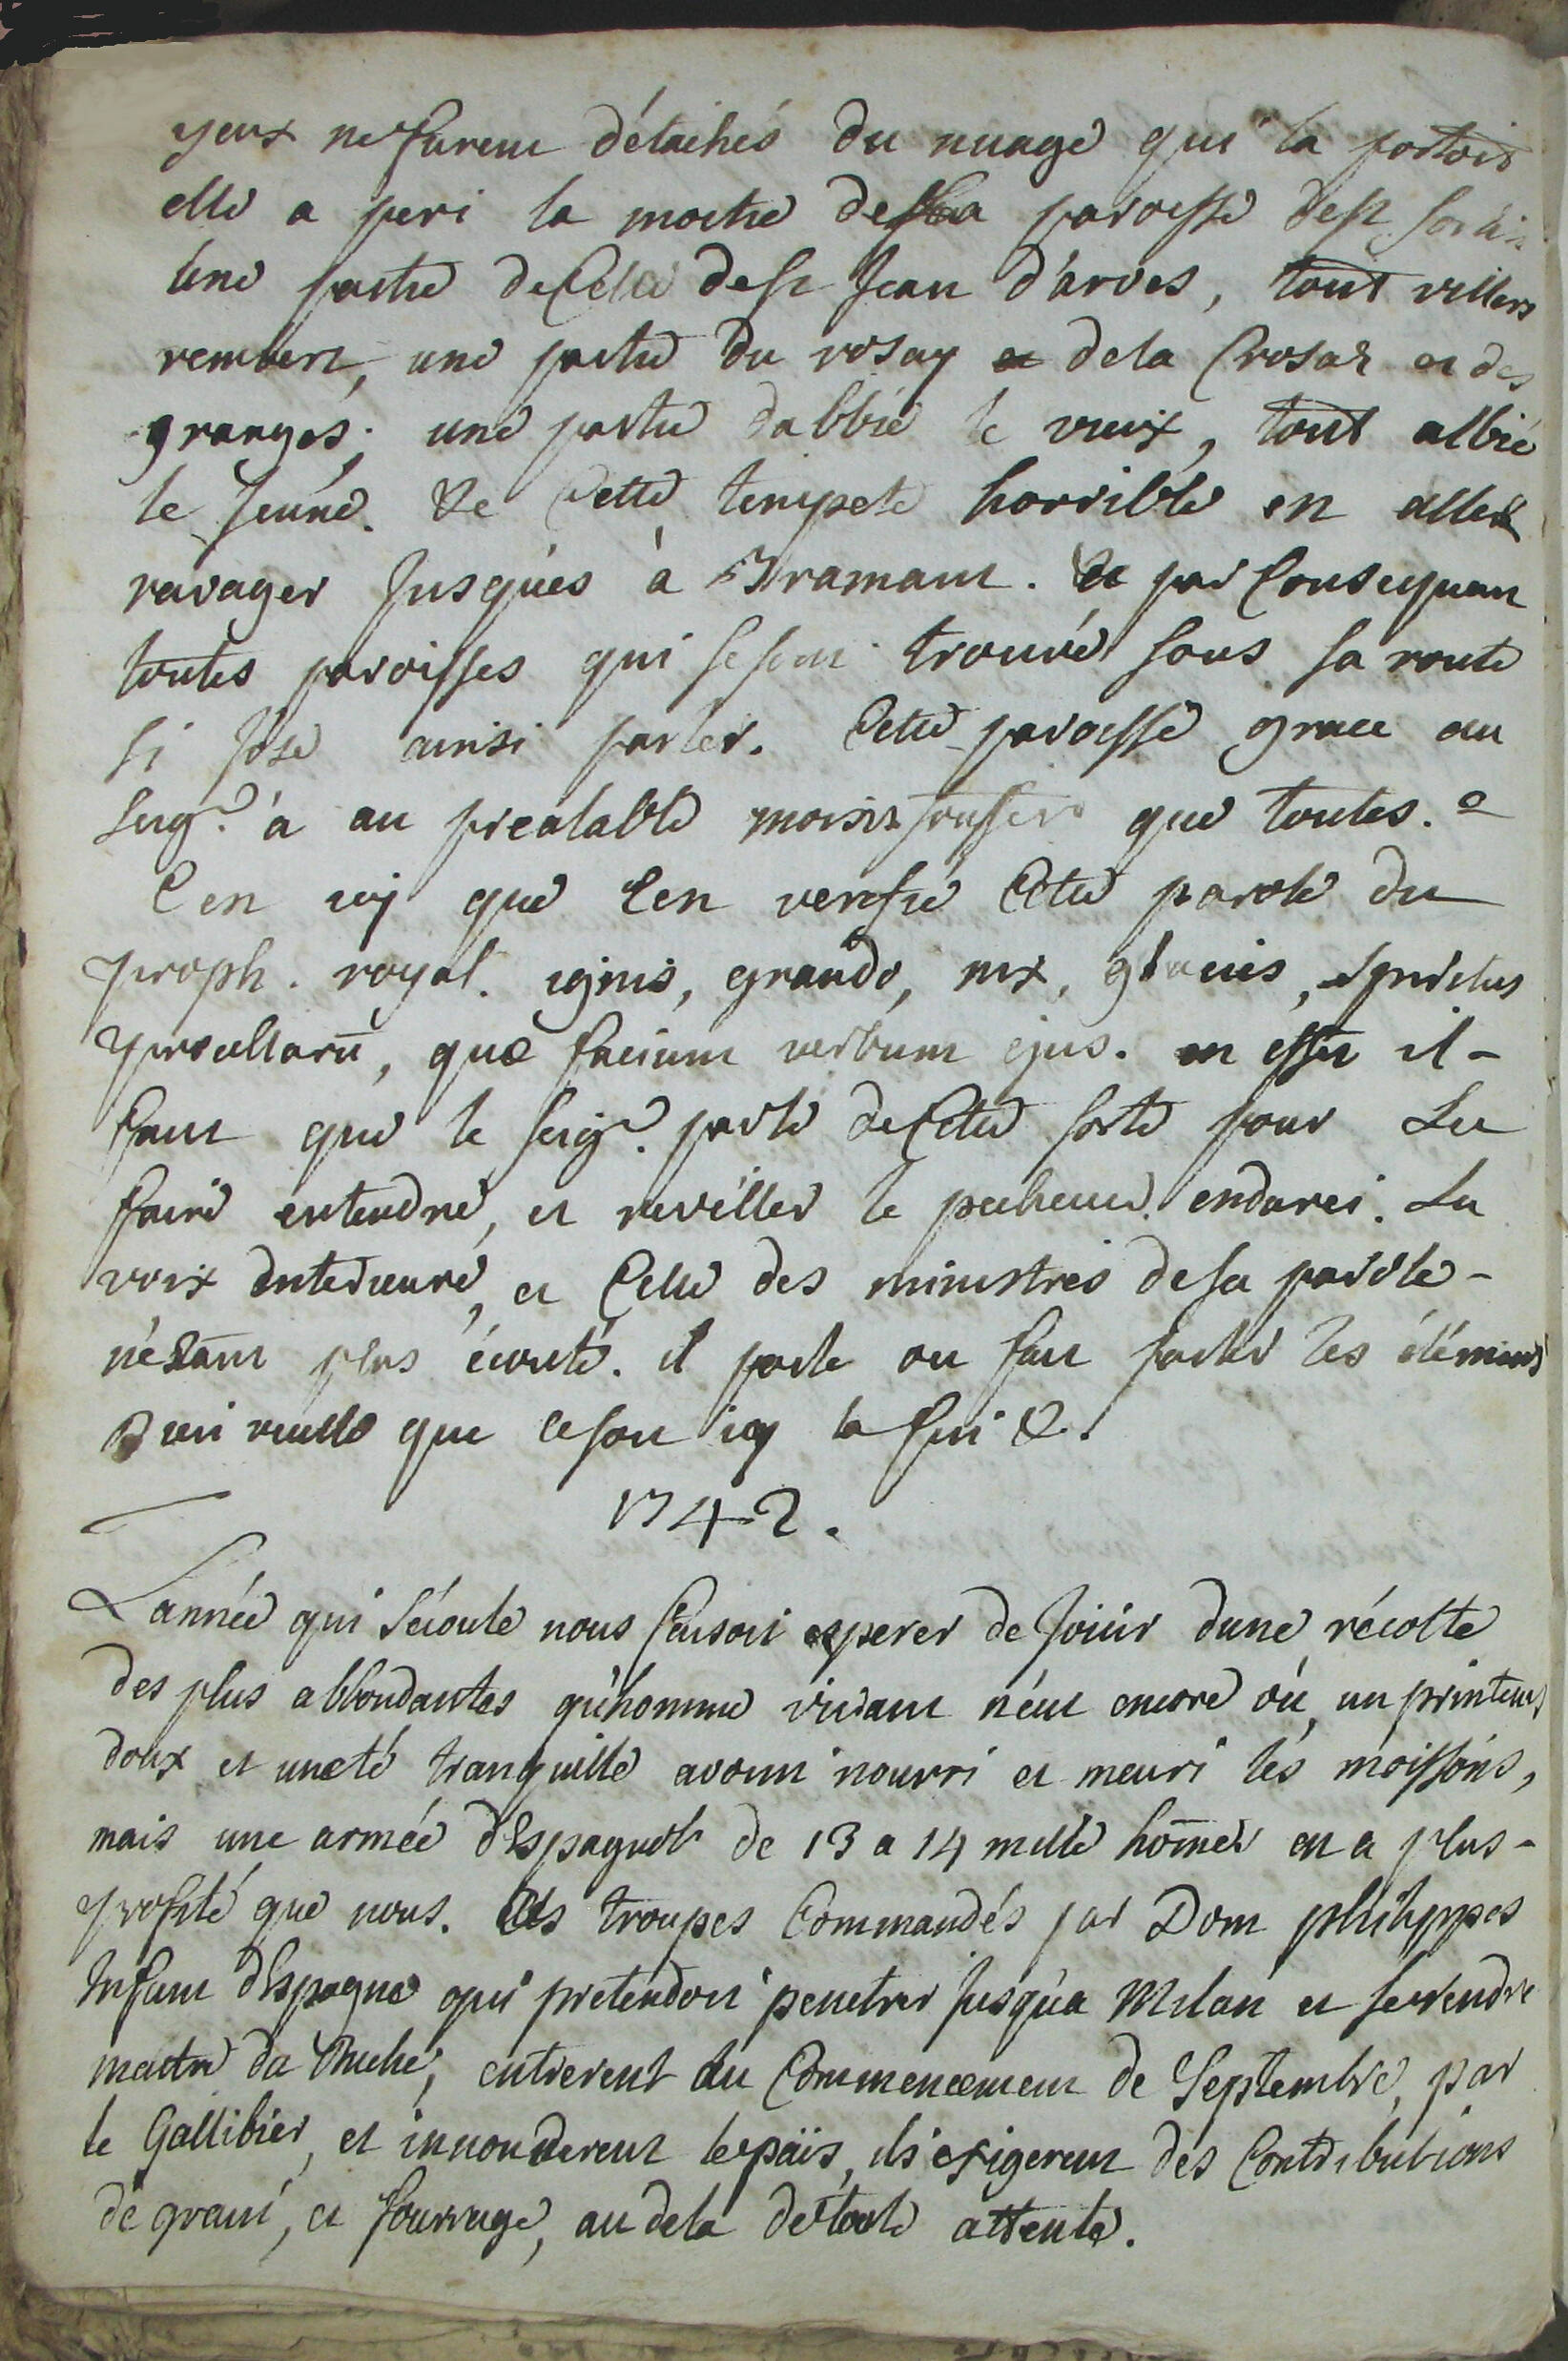 yeux ne furent détachés du nuage qui la portoit
elle a peri la moitié de sa paroisse de st Sorlin
une partie de Celle de st Jean d'arves, tout villars
rembert, une partie du rosay et de la Crosaz et des
granges; une partie dabbié le vieux, tout albié
le Jeune. & Cette tempete horrible en alla
ravager Jusques à Bramant. et par Consequant
toutes paroisses qui se sont trouvé sous sa route
si Jose ainsi parler. Cette paroisse grace au
Seigr. à au prealable moins souffert que toutes.
C en icy que sen verifié Cette parole du
proph. royal. ignis, grando, nix, glacies, spiritus
procellarū, quæ faciunt verbum ejus. en effet il
faut que le seigr. parle de Cette sorte pour se
faire entendre, et reveiller le pecheur endurci. sa
voix interieure, et Celle des ministres de sa parole
n'étant plus écouté. il parle ou fait parler les élémens
Dieu veuille que ce soit icy la fin &.
1742.
L'année qui s'écoule nous faisoit esperer de Joüir dune récolte
des plus abbondantes qu'homme vivant n'eut encore vû, un printems
doux et uneté tranquille avoint nourri et meuri les moissons,
mais une armée dEspagnols de 13 a 14 mille hom̄es en a plus
profité que nous. Ces troupes Commandés par Dom philippes
Infant dEspagne qui pretendoit penetrer Jusqu'a Milan et se rendre
maitre du Duché, entrerent au Commencement de Septembre, par
le Gallibier, et innonderent le païs, ils exigerent des Contributions
de grain, et fourrage, au dela de toute attente.